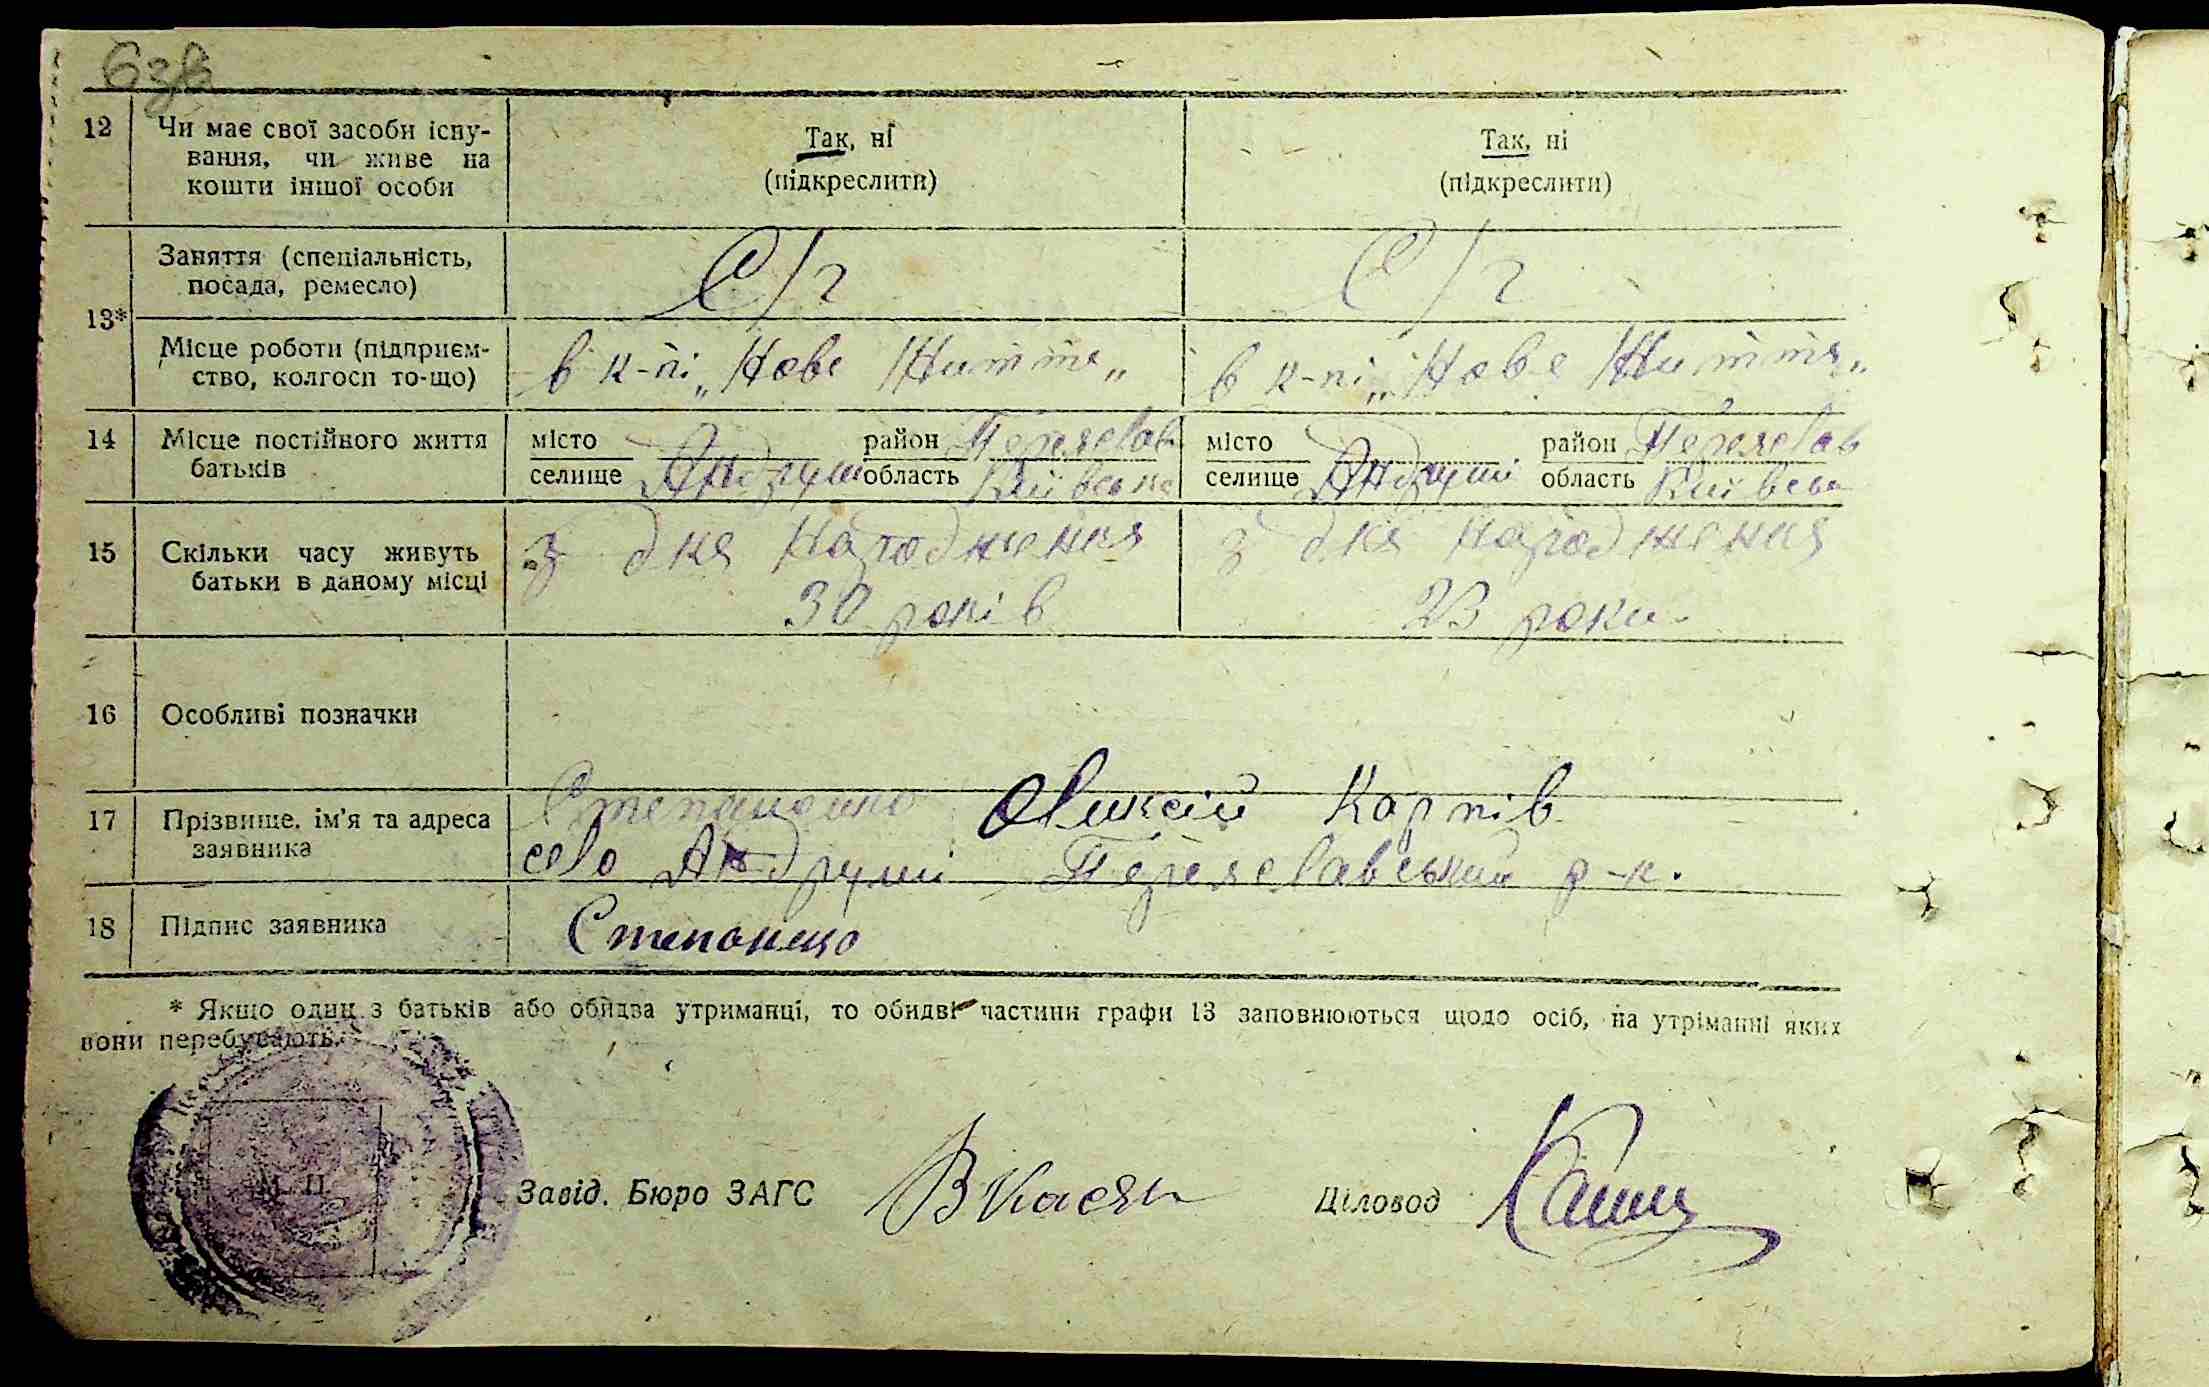 6зв
12 Чи має свої засоби існу-
вання, чи живе на
кошти іншої особи
Так, ні
(підкреслити)
Так, ні
(підкреслити)
13*
Заняття (спеціальність,
посада, ремесло)
С/г
С/г
Місце роботи (підприєм-
ство, колгосп то-що)
в к-пі „Нове Життя„
в к-пі „Нове Життя„
14 Місце постійного життя
батьків
місто
селище Андруші
район Переяслав
область Київська
місто
селище Андруші
район Переяслав
область Київськ
15 Скільки часу живуть
батьки в даному місці
з дня народження
30 років
з дня народження
23 роки.
16 Особливі позначки
17 Прізвище, ім'я та адреса
заявника
Оликсій Карпів
село Андруші Переяславський р-н.
18 Підпис заявника
* Якщо один з батьків або обидва утриманці, то обидві частини графи 13 заповнюються щодо осіб, на утріманні яких
вони перебувають.
М. П.
Завід. Бюро ЗАГС ВКасян
Діловод